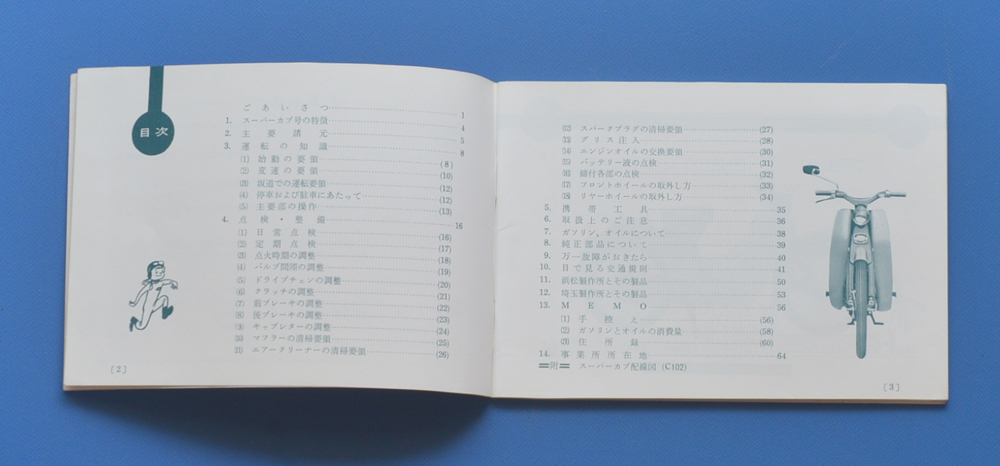 目次
ごあいさつ 1
1. スーパーカブ号の特徴 4
2. 主要諸元 5
3. 運転の知識 8
(1) 始動の要領 (8)
(2) 変速の要領 (10)
(3) 坂道での運転要領 (12)
(4) 停車および駐車にあたって (12)
(5) 主要部の操作 (13)
4. 点検・整備 16
(1) 日常点検 (16)
(2) 定期点検 (17)
(3) 点火時期の調整 (18)
(4) バルブ間隙の調整 (19)
(5) ドライブチェンの調整 (20)
(6) クラッチの調整 (21)
(7) 前ブレーキの調整 (22)
(8) 後ブレーキの調整 (23)
(9) キャブレターの調整 (24)
(10) マフラーの清掃要領 (25)
(11) エアークリーナーの清掃要領 (26)
〔2〕
(12) スパークプラグの清掃要領 (27)
(13) グリス注入 (28)
(14) エンジンオイルの交換要領 (30)
(15) バッテリー液の点検 (31)
(16) 締付各部の点検 (32)
(17) フロントホイールの取外し方 (33)
(18) リヤーホイールの取外し方 (34)
5. 携帯工具 35
6. 取扱上のご注意 36
7. ガソリン、オイルについて 38
8. 純正部品について 39
9. 万一故障がおきたら 40
10. 目で見る交通規則 41
11. 浜松製作所とその製品 50
12. 埼玉製作所とその製品 53
13. MEMO 56
(1) 手控え (56)
(2) ガソリンとオイルの消費量 (58)
(3) 住所録 (60)
14. 事業所所在地 64
=附= スーパーカブ配線図 (C102)
〔3〕